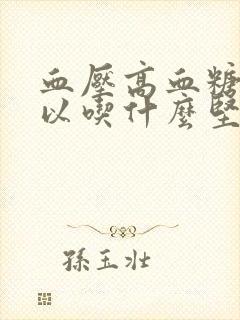 血壓高血糖
以喫什麼堅
孫玉壯